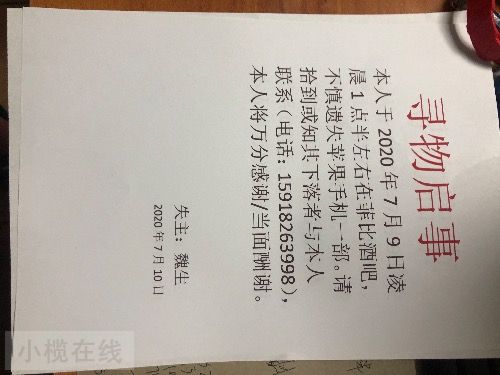 寻物启事
本人于 2020 年 7 月 9 日凌
晨 1 点半左右在菲比酒吧，
不慎遗失苹果手机一部。请
拾到或知其下落者与本人
联系（电话：15918263998），
本人将万分感谢/当面酬谢。
失主：魏生
2020 年 7 月 10 日
小榄在线